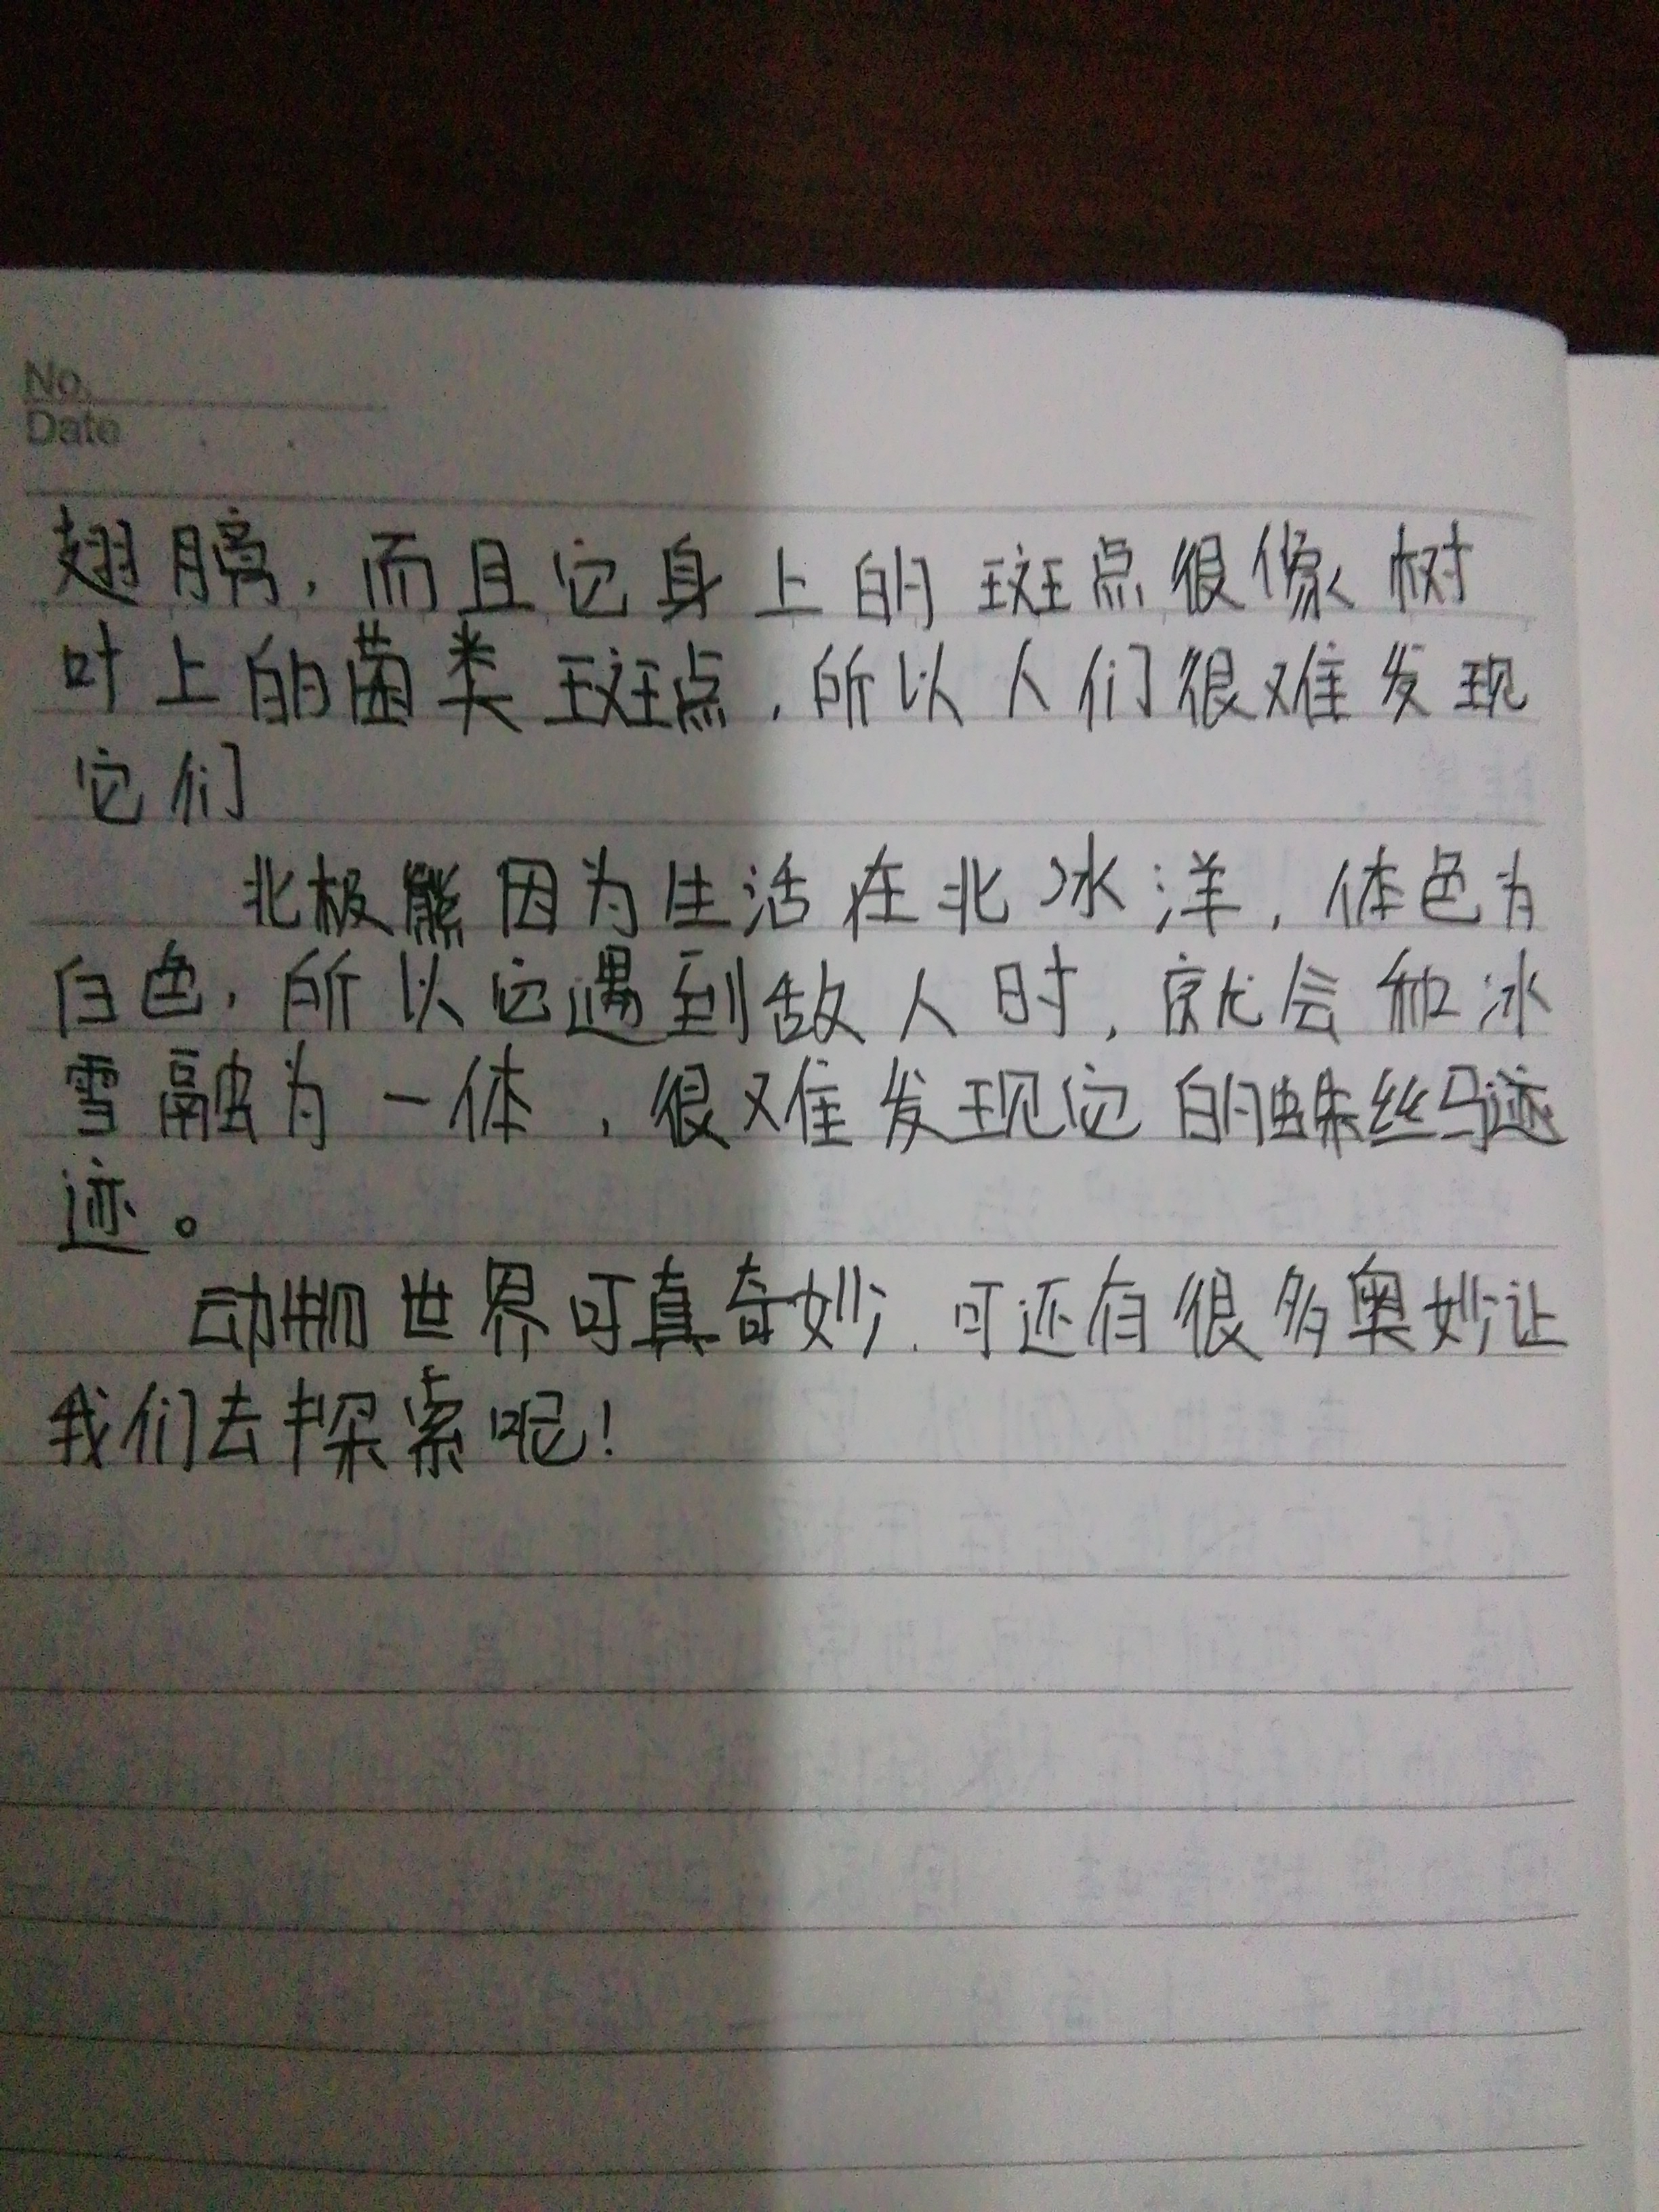 No.
Date
翅膀，而且它身上的斑点很像树
叶上的菌类斑点，所以人们很难发现
它们
北极熊因为生活在北冰洋，体色为
白色，所以它遇到敌人时，就会和冰
雪融为一体，很难发现它的蛛丝马迹
迹。
动物世界可真奇妙，可还有很多奥妙让
我们去探索呢！